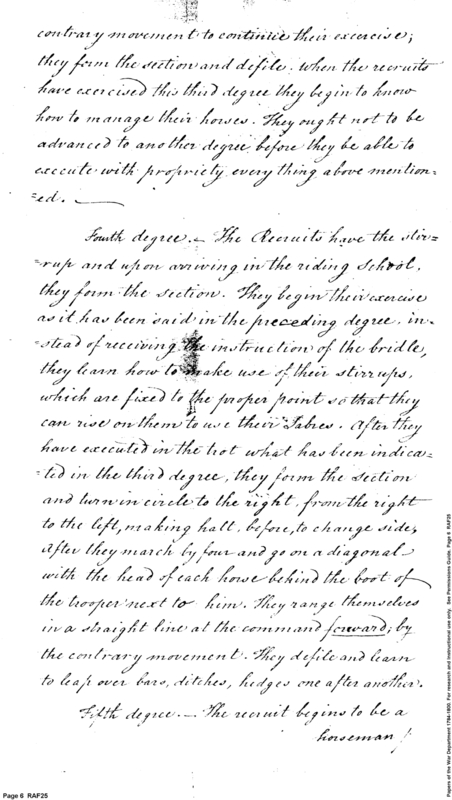 contrary movement to continue their exercise;
they form the section and defile. when the recruits
have exercised this third degree they begin to know
how to manage their horses. They ought not to be
advanced to another degree before they be able to
execute with propriety every thing above mention=
=ed. —
Fourth degree. — The Recruits have the stir=
=rup and upon arriving in the riding School,
they form the section. They begin their exercise
as it has been said in the preceding degree, in-
stead of receiving the instruction of the bridle,
they learn how to make use of their stirrups,
which are fixed to the proper point so that they
can rise on them to use their Sabres. After they
have executed in the trot what has been indica=
=ted in the third degree, they form the section
and turn in circle to the right, from the right
to the left, making halt, before, to change side,
After they march by four and go on a diagonal
with the head of each horse behind the boot of
the trooper next to him. They range themselves
in a straight line at the command forward; by
the contrary movement. They defile and learn
to leap over bars, ditches, hedges one after another.
Fifth degree. — The recruit begins to be a
horseman
Page 6 RAF25
Papers of the War Department 1784-1800. For research and instructional use only. See Permissions Guide. Page 6 RAF25